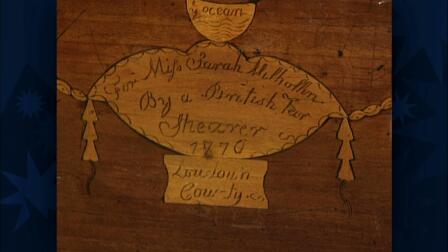 ocean
For Miss Sarah Milhollin
By a British Tar
Shearer
18
Loudoun
County